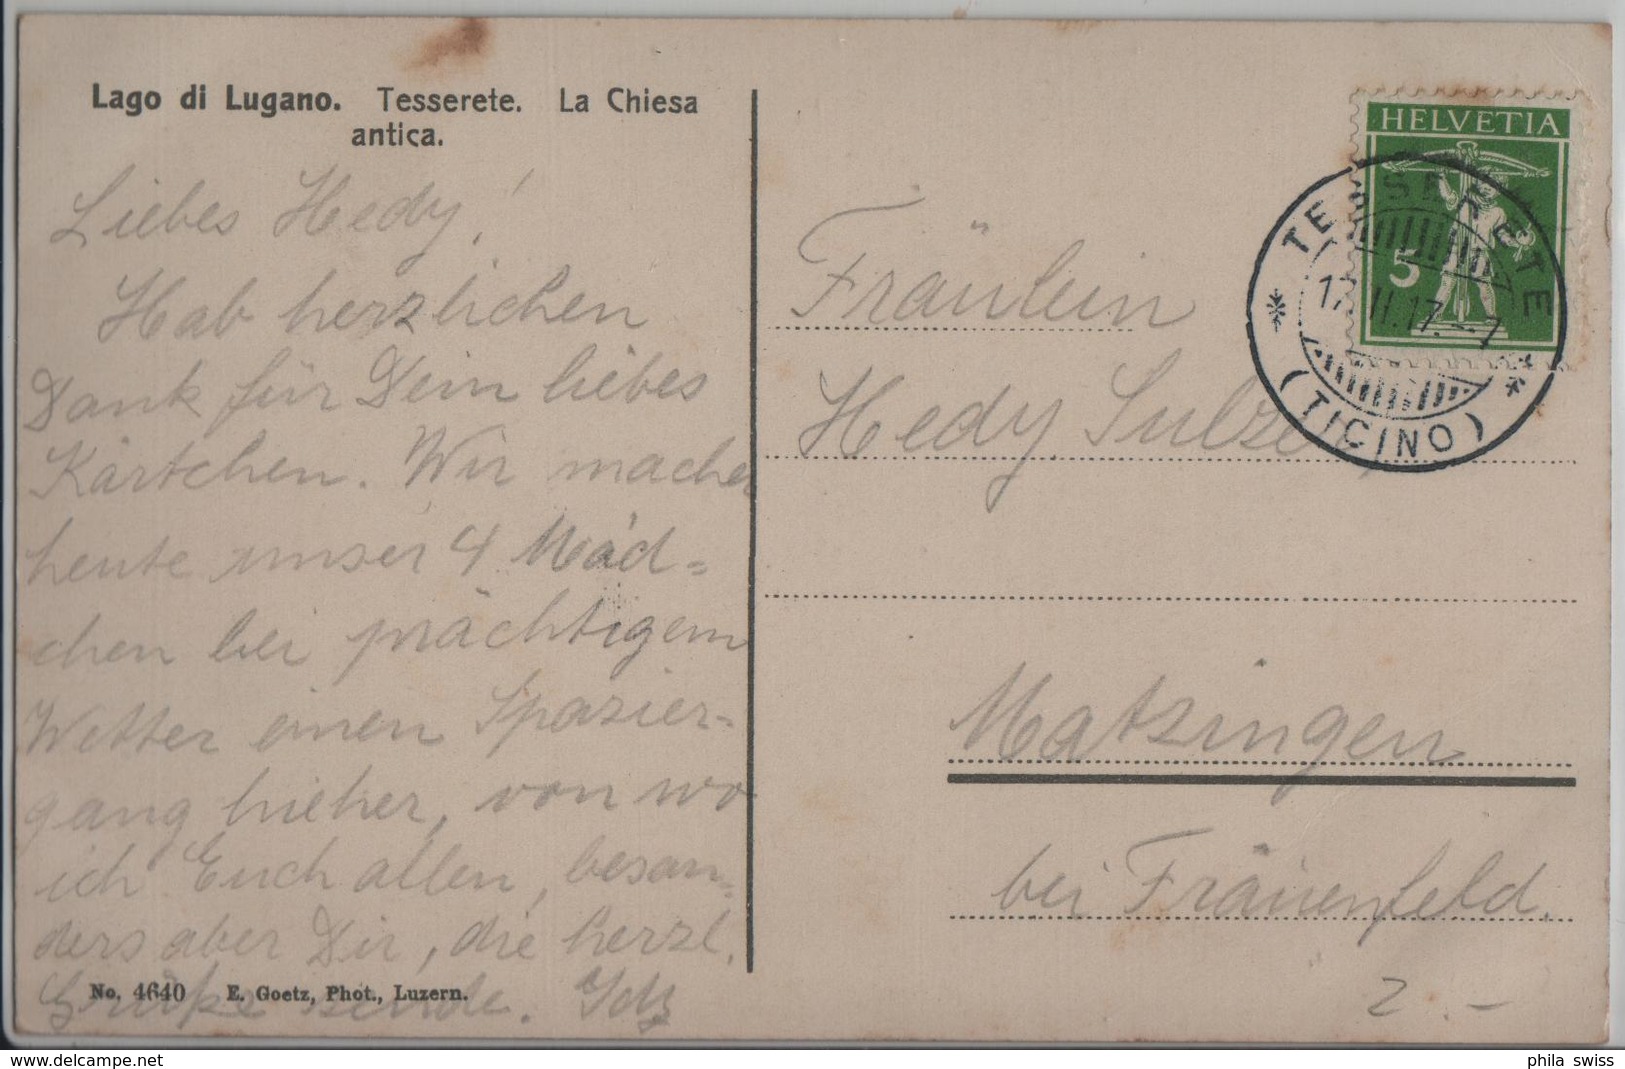 Lago di Lugano. Tesserete. La Chiesa
antica.
Liebes Hedy!
Hab herzlichen
Dank für Dein liebes
Kärtchen. Wir machen
heute unser 4 Mäd=
chen bei prächtigem
Wetter einen Spazier=
gang hieher, von wo
ich Euch allen, beson=
ders aber Dir, die herzl.
Grüße sende.
No. 4640 E. Goetz, Phot., Luzern.
HELVETIA
5
TESSERETE
17. II. 17. – 7
(TICINO)
Fräulein
Hedy Sulzer
Matzingen
bei Frauenfeld.
2.–
phila swiss
www.delcampe.net